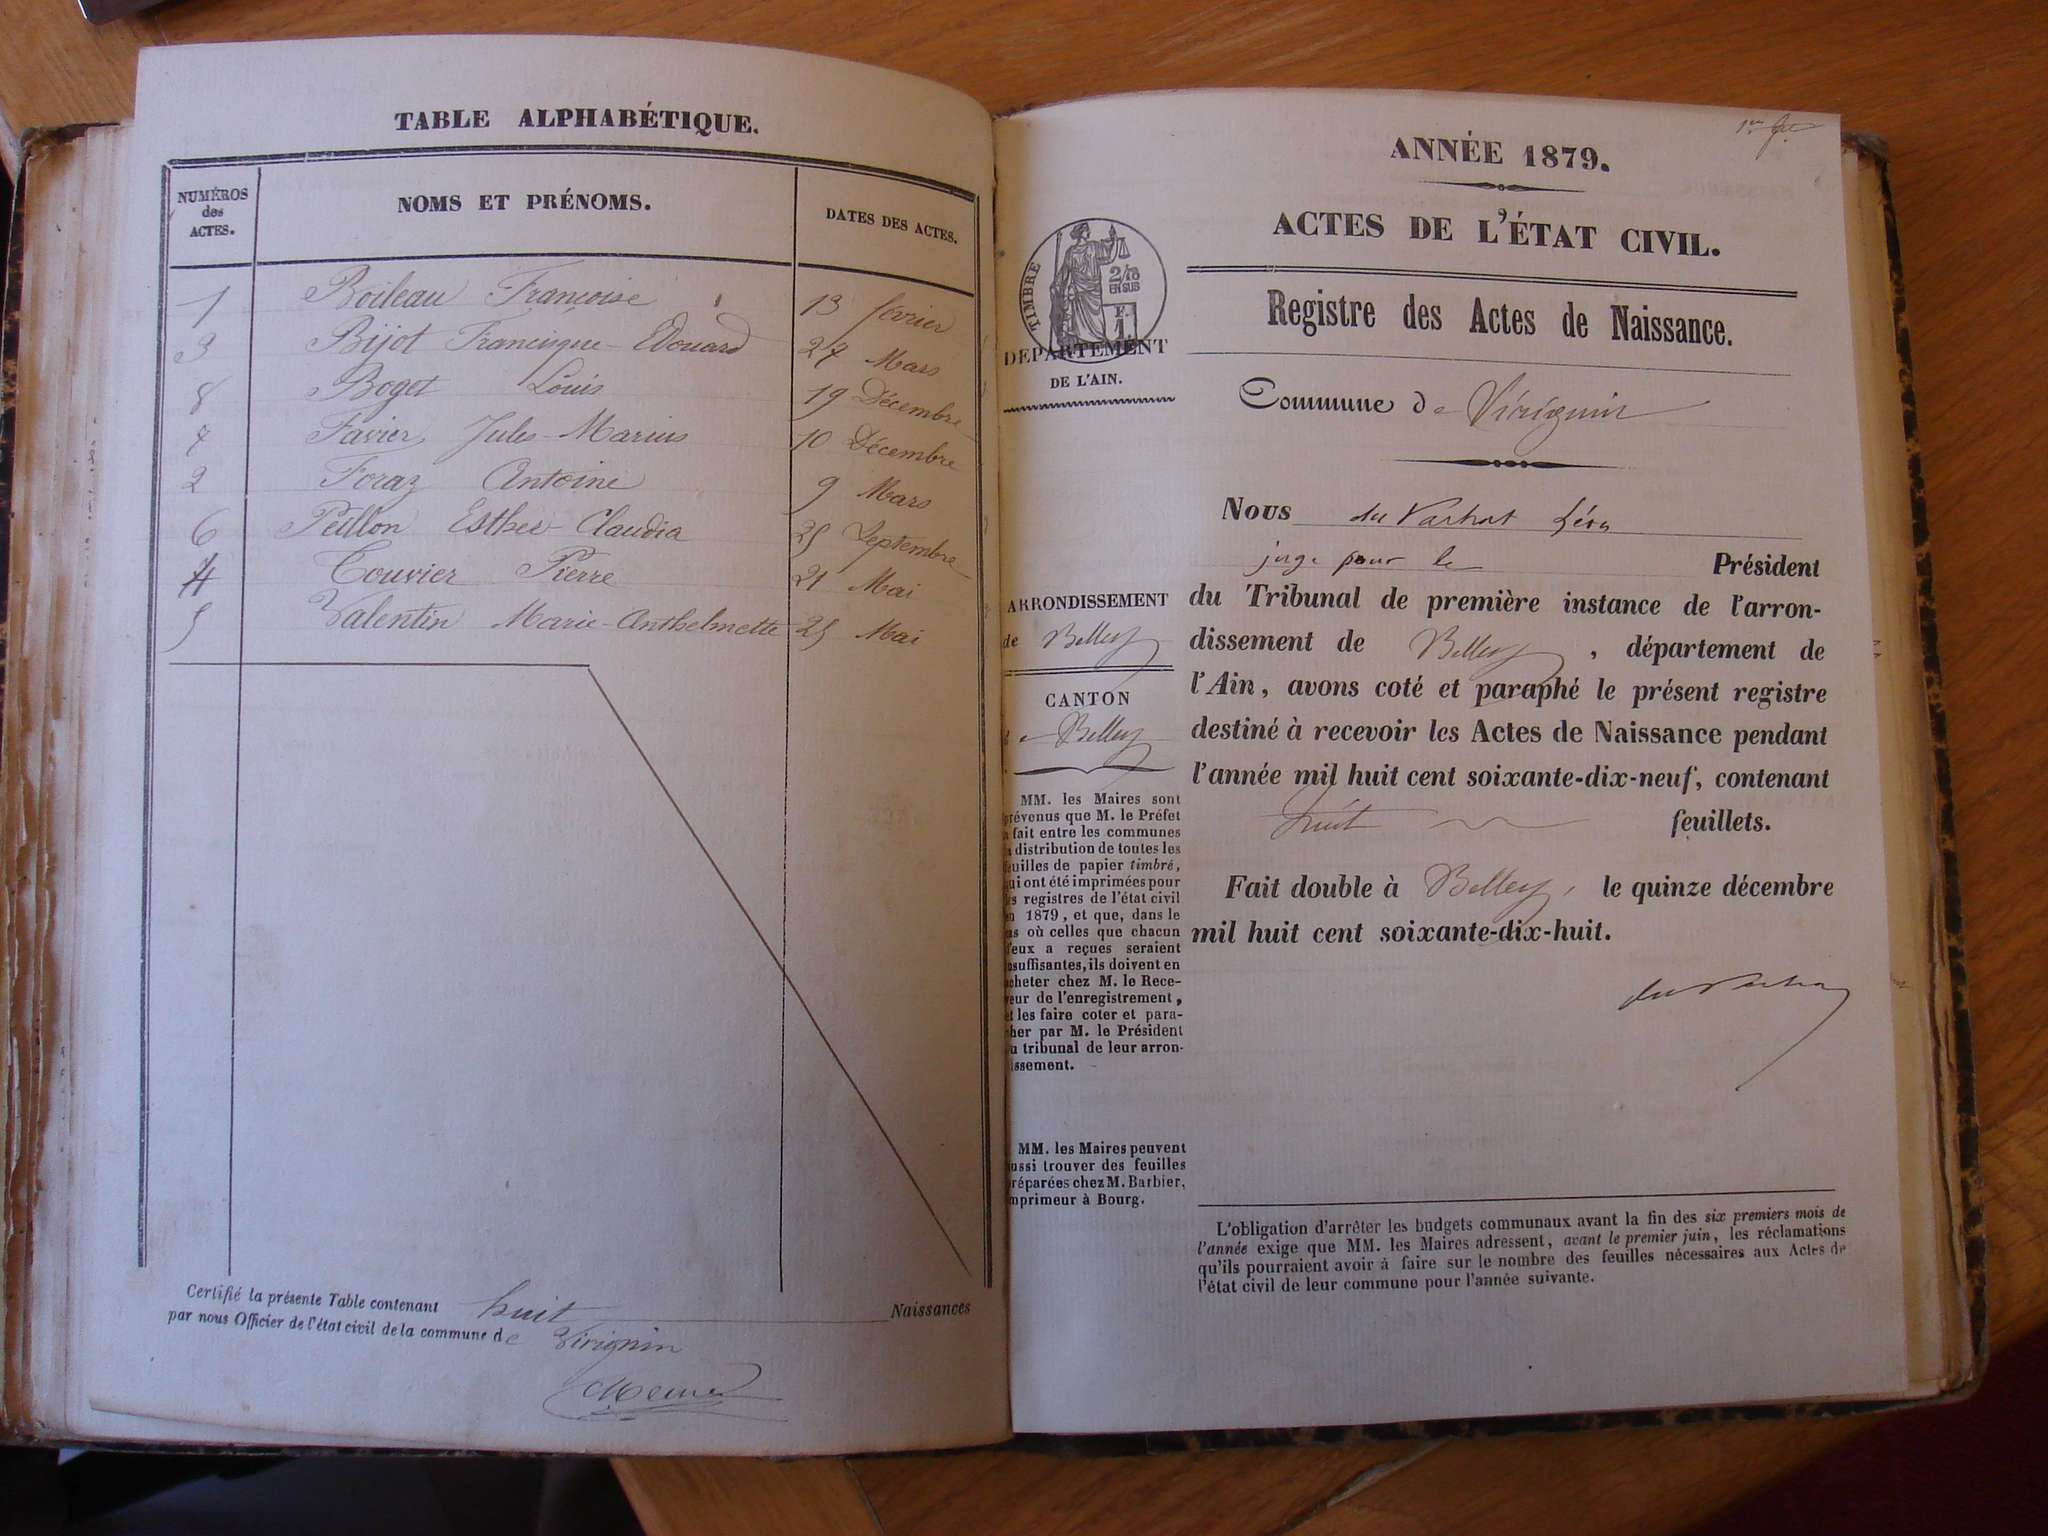 TABLE ALPHABÉTIQUE.
NUMÉROS des ACTES.
NOMS ET PRÉNOMS.
DATES DES ACTES.
1 Boileau Françoise 13 février
3 Bijot Francisque-Edouard 27 Mars
8 Boget Louis 19 Décembre
7 Favier Jules-Marius 10 Décembre
2 Foraz Antoine 9 Mars
6 Peillon Esther-Claudia 25 Septembre
4 Touvier Pierre 21 Mai
5 Valentin Marie-Anthelmette 25 Mai
Certifié la présente Table contenant huit Naissances
par nous Officier de l'état civil de la commune de Virignin
ANNÉE 1879.
ACTES DE L'ÉTAT CIVIL.
TIMBRE
2/10
EN SUS
F.
1.
DEPARTEMENT
DE L'AIN.
Registre des Actes de Naissance.
Commune de Virignin
Nous
juge pour le Président
du Tribunal de première instance de l'arron-
dissement de Belley, département de
l'Ain, avons coté et paraphé le présent registre
destiné à recevoir les Actes de Naissance pendant
l'année mil huit cent soixante-dix-neuf, contenant
huit feuillets.
Fait double à Belley, le quinze décembre
mil huit cent soixante-dix-huit.
ARRONDISSEMENT
de Belley
CANTON
de Belley
MM. les Maires sont
prévenus que M. le Préfet
a fait entre les communes
la distribution de toutes les
feuilles de papier timbré,
qui ont été imprimées pour
les registres de l'état civil
en 1879, et que, dans le
cas où celles que chacun
d'eux a reçues seraient
insuffisantes, ils doivent en
acheter chez M. le Rece-
veur de l'enregistrement,
et les faire coter et para-
pher par M. le Président
du tribunal de leur arron-
dissement.
MM. les Maires peuvent
aussi trouver des feuilles
préparées chez M. Barbier,
imprimeur à Bourg.
L'obligation d'arrêter les budgets communaux avant la fin des six premiers mois de
l'année exige que MM. les Maires adressent, avant le premier juin, les réclamations
qu'ils pourraient avoir à faire sur le nombre des feuilles nécessaires aux Actes de
l'état civil de leur commune pour l'année suivante.